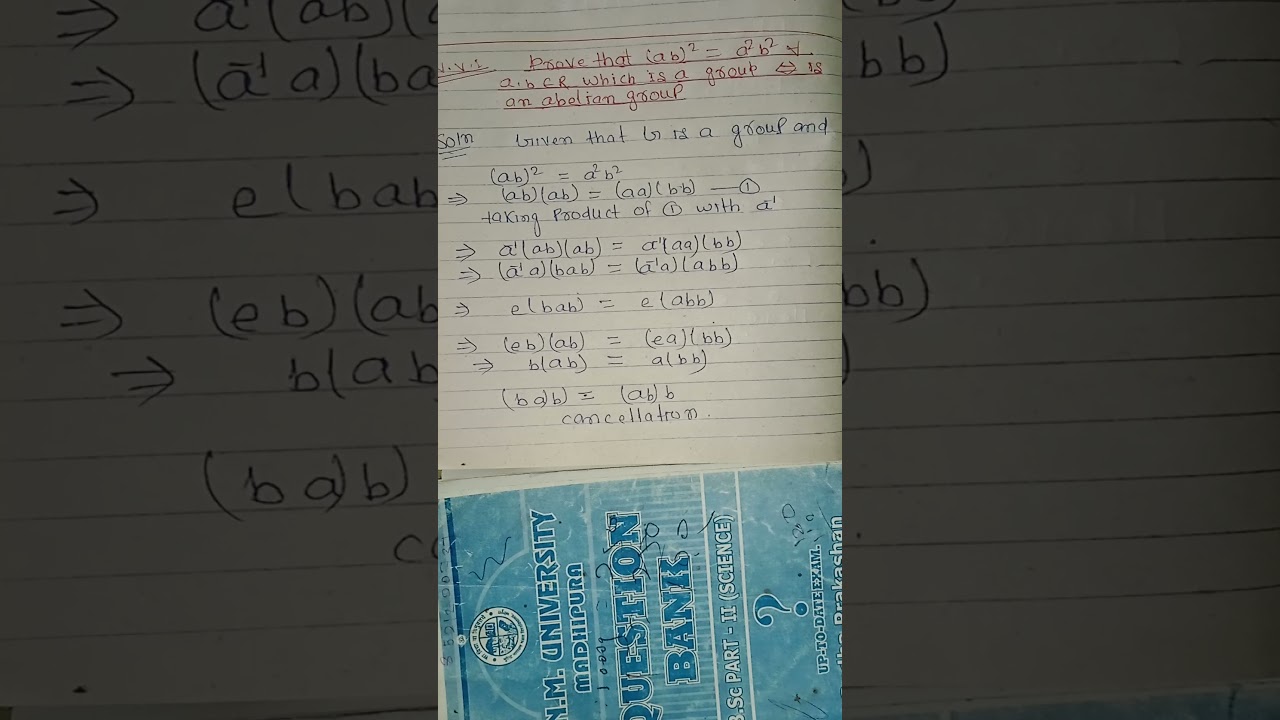 V.V.I. Prove that (ab)² = a²b² ∀
a,b∈R which is a group ⇔ is
an abelian group
Soln Given that G is a group and
(ab)² = a²b²
⇒ (ab)(ab) = (aa)(b.b) —①
taking product of ① with a⁻¹
⇒ a⁻¹(ab)(ab) = a⁻¹(aa)(bb)
⇒ (a⁻¹a)(bab) = (a⁻¹a)(abb)
⇒ e(bab) = e(abb)
⇒ (eb)(ab) = (ea)(bb)
⇒ b(ab) = a(bb)
(ba)b) = (ab)b
cancellation.
N.M. UNIVERSITY
MADHIPURA
QUESTION
BANK
B.Sc PART - II (SCIENCE)
?
UP-TO-DATE EXAM.
Prakashan